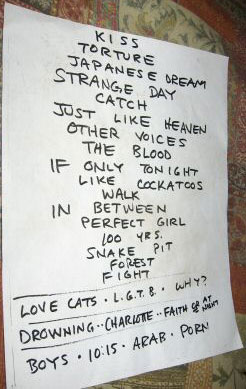 KISS
TORTURE
JAPANESE DREAM
STRANGE DAY
CATCH
JUST LIKE HEAVEN
OTHER VOICES
THE BLOOD
IF ONLY TONIGHT
LIKE COCKATOOS
WALK
IN BETWEEN
PERFECT GIRL
100 YRS.
SNAKE PIT
FOREST
FIGHT
LOVE CATS · L.G.T.B. · WHY?
DROWNING · · CHARLOTTE · · FAITH OR AT NIGHT
BOYS · 10:15 · ARAB · PORN